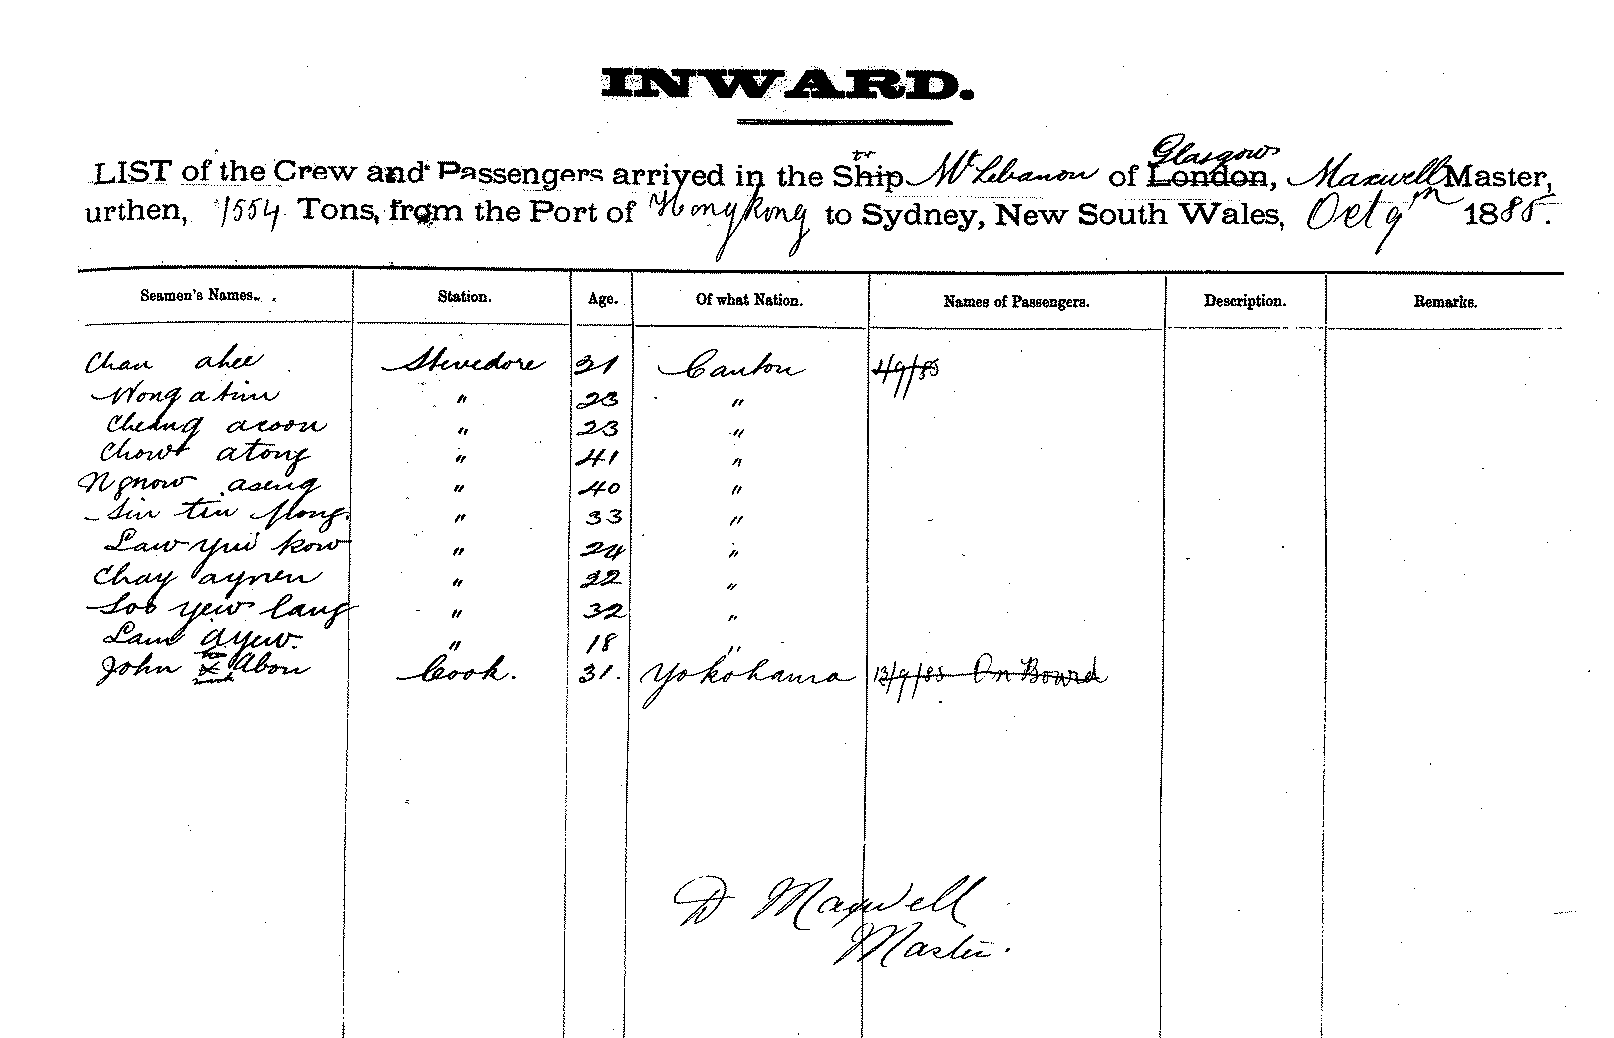 INWARD.
LIST of the Crew and Passengers arrived in the Ship str Mt Lebanon of London, Glasgow Maxwell Master,
urthen, 1554 Tons, from the Port of Hong Kong to Sydney, New South Wales, Oct 9th 1885.
Seamen's Names. Station. Age. Of what Nation. Names of Passengers. Description. Remarks.
Chan ahee Stevedore 21 Canton 4/9/85
Wong a tim " 23 "
Cheang acoon " 23 "
Chow atong " 41 "
aseng " 40 "
Sin tin " 33 "
Law yui kow " 24 "
Chay " 22 "
Soo yew lang " 32 "
Lam ayew. " 18 "
John x Abou Cook. 31. Yokohama 12/9/85 On Board
D Maxwell
Master.